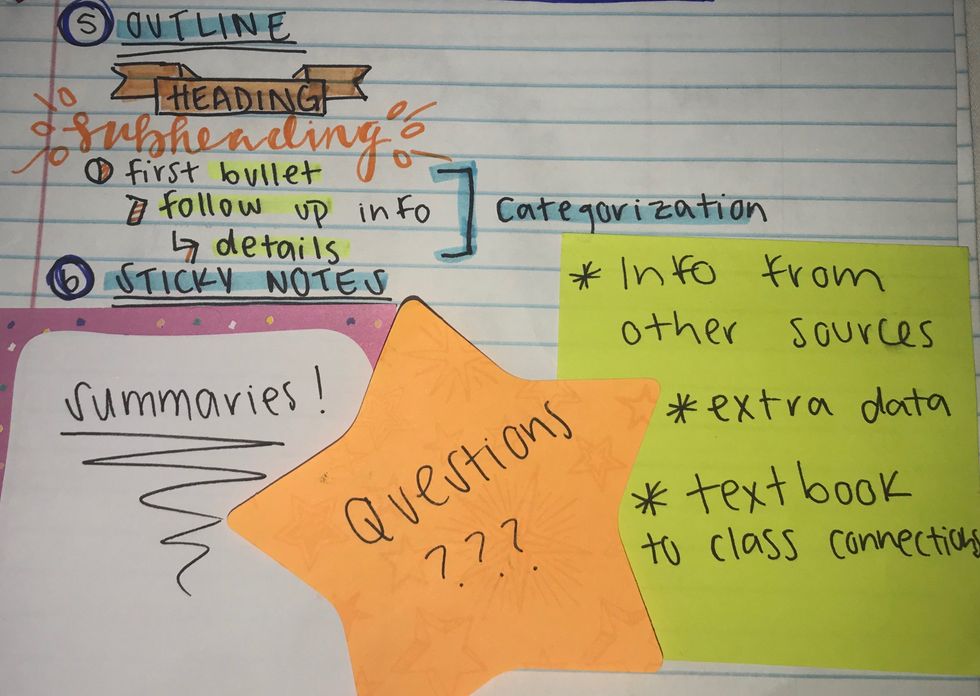 5 OUTLINE
HEADING
subheading
first bullet
follow up info
details
categorization
6 STICKY NOTES
summaries!
Questions
???
* Info from
other sources
* extra data
* textbook
to class connections